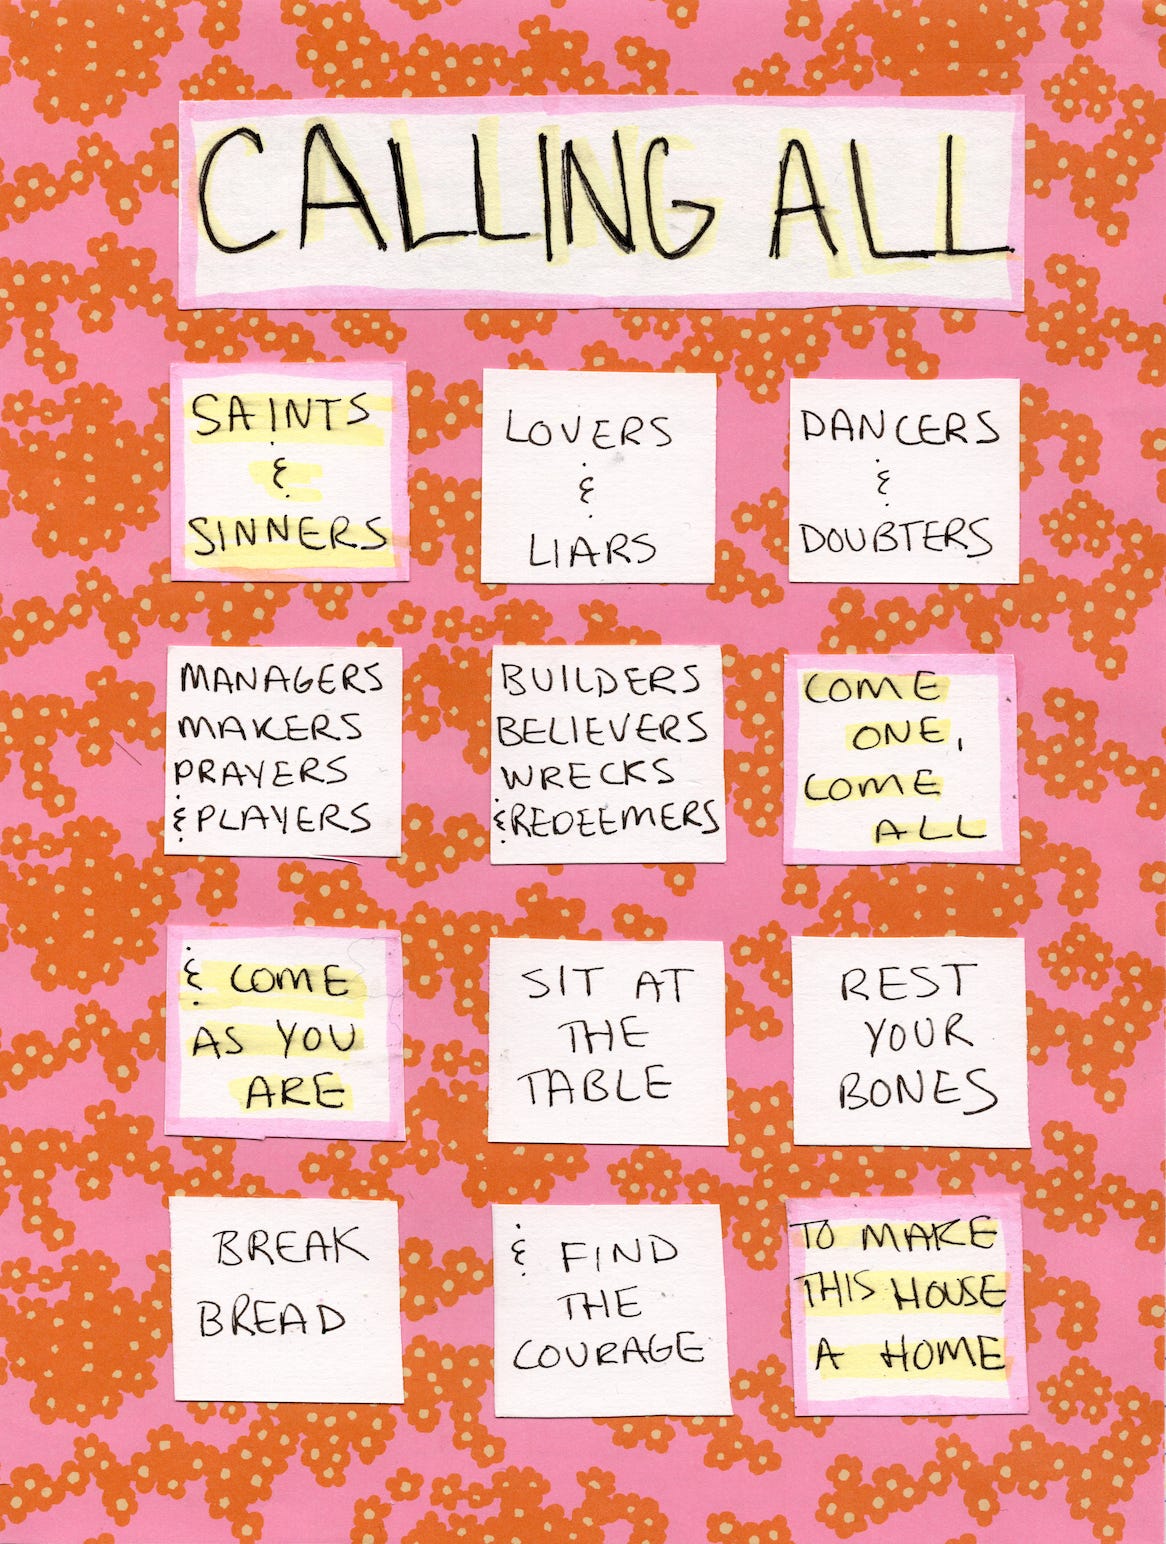 CALLING ALL
SAINTS
&
SINNERS
LOVERS
&
LIARS
DANCERS
&
DOUBTERS
MANAGERS
MAKERS
PRAYERS
& PLAYERS
BUILDERS
BELIEVERS
WRECKS
& REDEEMERS
COME
ONE,
COME
ALL
& COME
AS YOU
ARE
SIT AT
THE
TABLE
REST
YOUR
BONES
BREAK
BREAD
& FIND
THE
COURAGE
TO MAKE
THIS HOUSE
A HOME